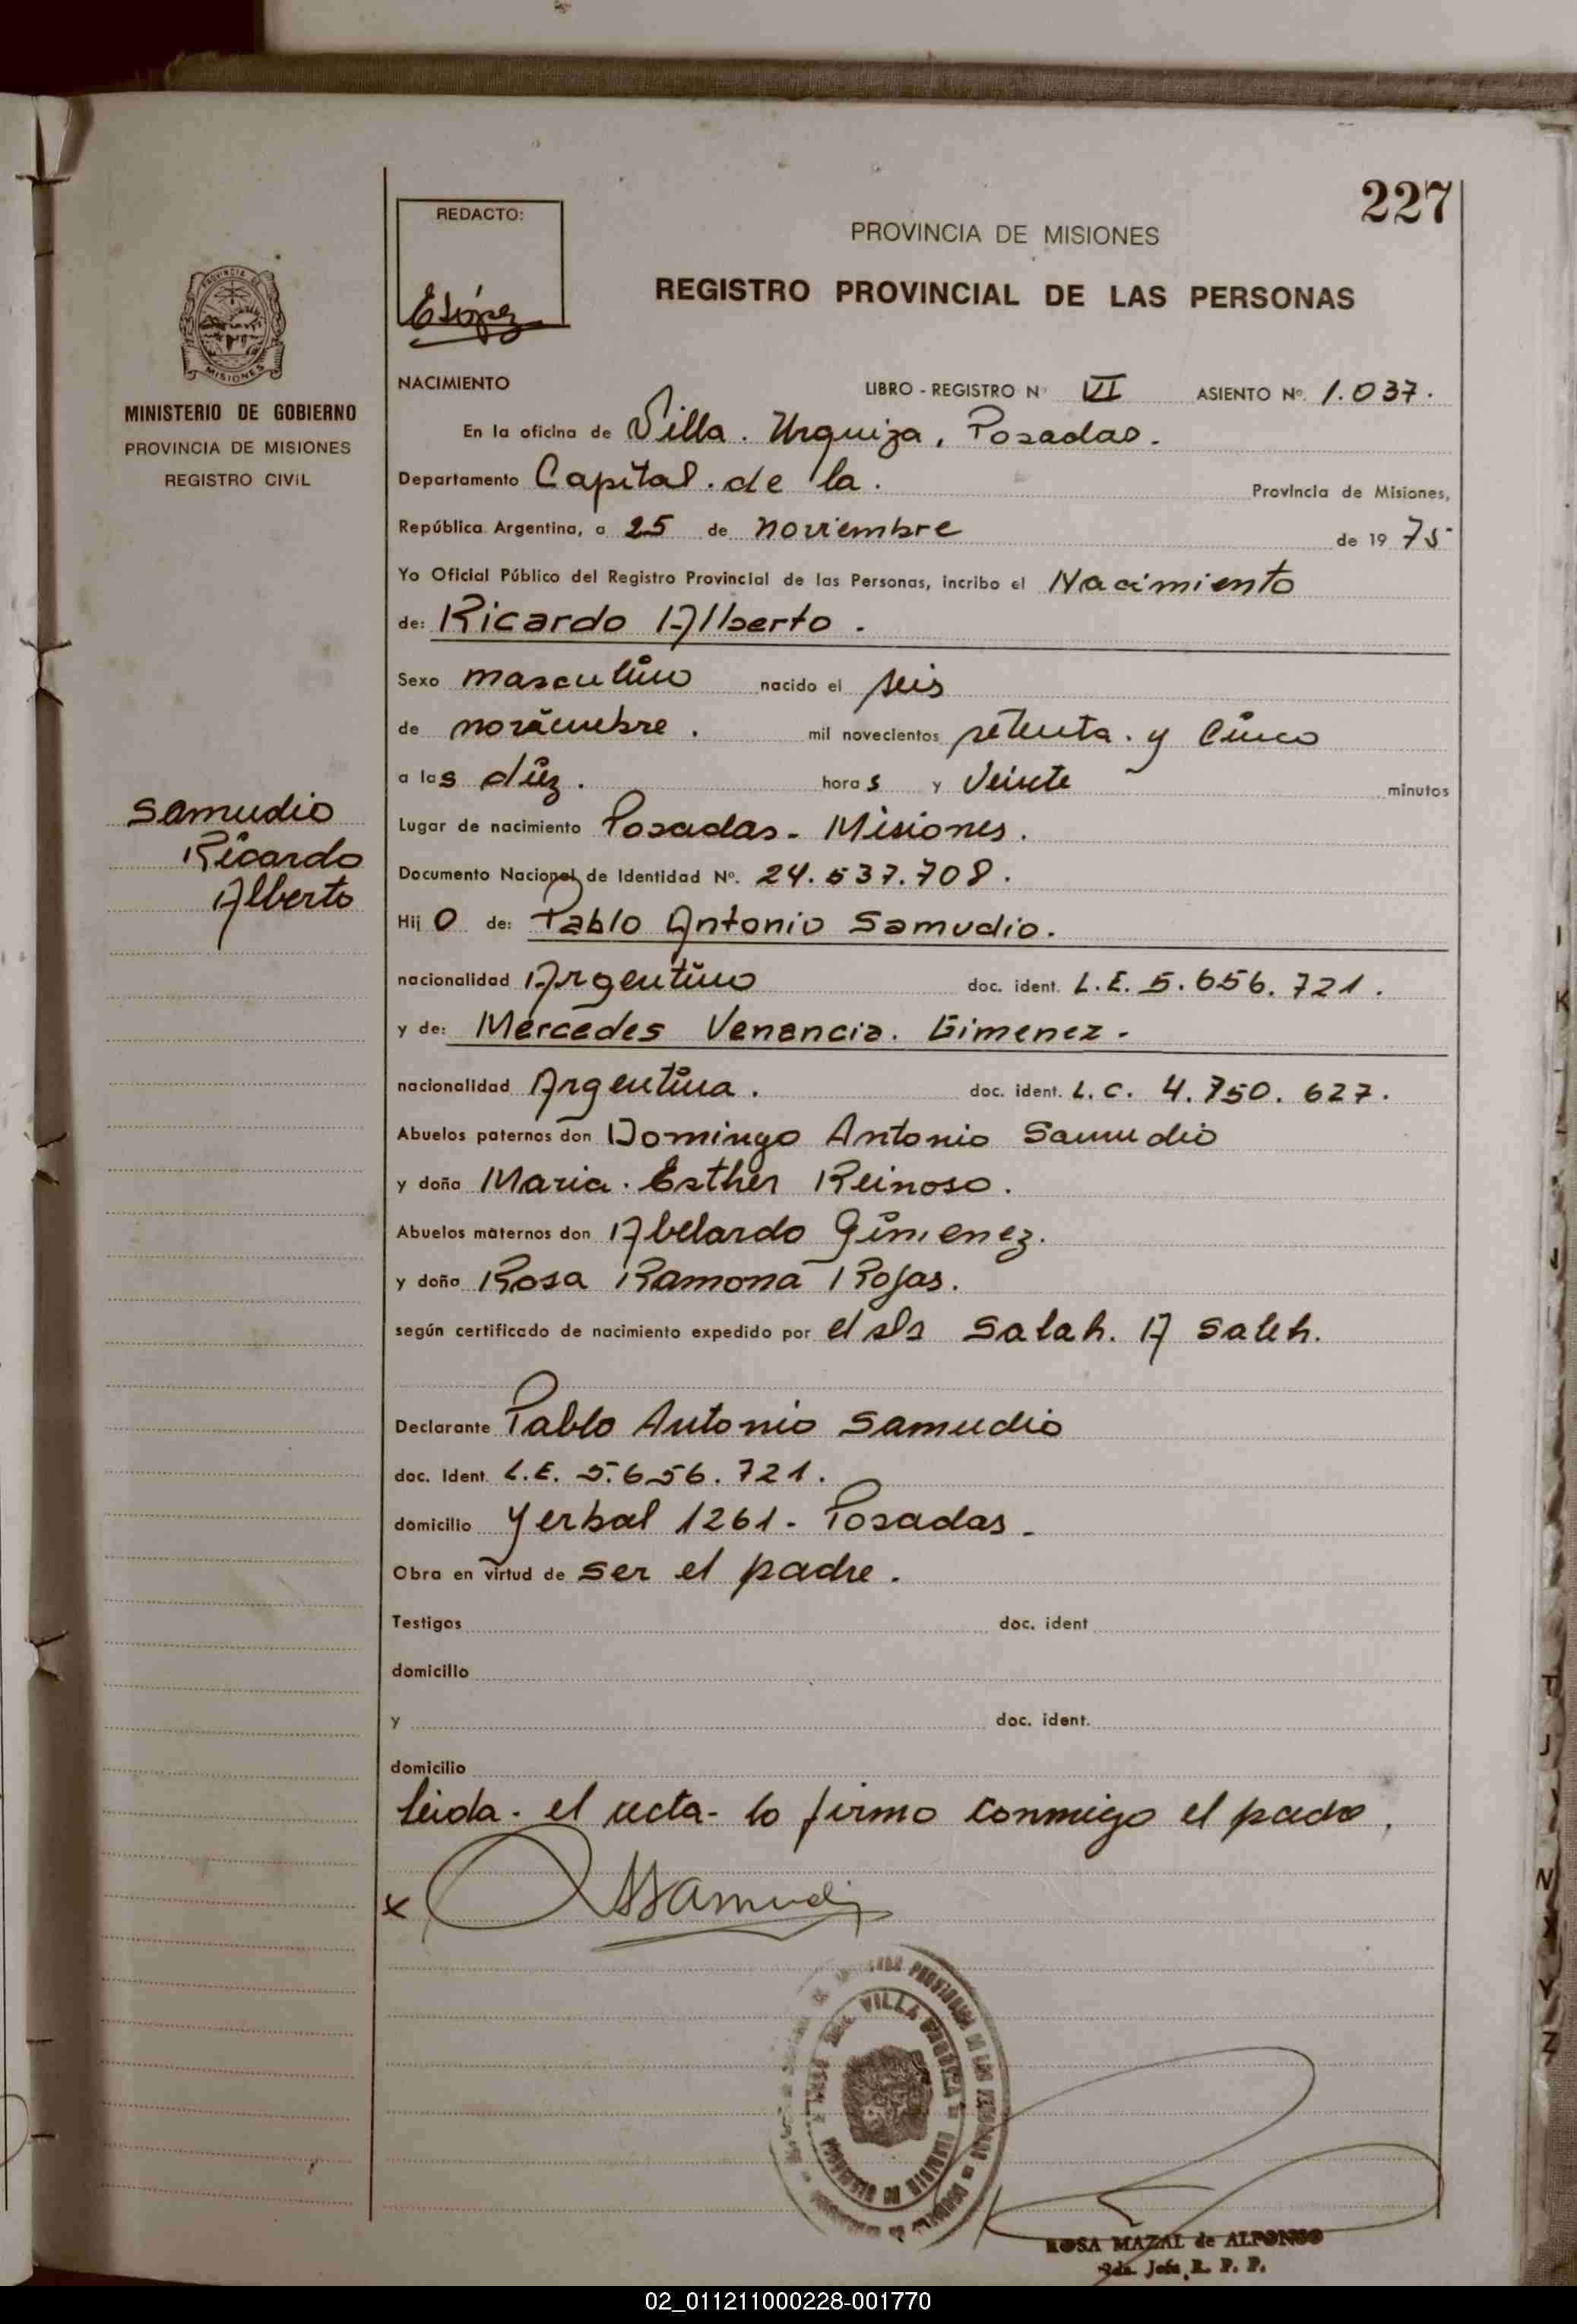 227
REDACTO:
ELópez
PROVINCIA DE MISIONES
REGISTRO PROVINCIAL DE LAS PERSONAS
PROVINCIA DE
MISIONES
MINISTERIO DE GOBIERNO
PROVINCIA DE MISIONES
REGISTRO CIVIL
Samudio
Ricardo
Alberto
NACIMIENTO LIBRO - REGISTRO Nº VI ASIENTO Nº. 1.037.
En la oficina de Villa. Urquiza, Posadas.
Departamento Capital. de la. Provincia de Misiones,
República Argentina, a 25 de noviembre de 19 75
Yo Oficial Público del Registro Provincial de las Personas, incribo el Nacimiento
de: Ricardo Alberto.
Sexo masculino nacido el seis
de noviembre. mil novecientos setenta. y Cinco
a las diez. horas y Veinte minutos
Lugar de nacimiento Posadas - Misiones.
Documento Nacional de Identidad Nº. 24.537.708.
Hijo de: Pablo Antonio Samudio.
nacionalidad Argentino doc. ident. L.E. 5.656.721.
y de: Mercedes Venancia. Gimenez -
nacionalidad Argentina. doc. ident. L.C. 4.750.627.
Abuelos paternos don Domingo Antonio Samudio
y doña Maria. Esther Reinoso.
Abuelos maternos don Abelardo Gimenez.
y doña Rosa Ramona Rojas.
según certificado de nacimiento expedido por el Salah. A Saleh.
Declarante Pablo Antonio Samudio
doc. Ident. L.E. 5.656.721.
domicilio Yerbal 1261 - Posadas -
Obra en virtud de ser el padre.
Testigos doc. ident
domicilio
y doc. ident.
domicilio
leida - el acta - lo firmo conmigo el padre,
x Samudio
VILLA URQUIZA
ROSA MAZAL de ALFONSO
2da. Jefa R. P. P.
I
K
J
T
J
N
Y
Z
02_011211000228-001770